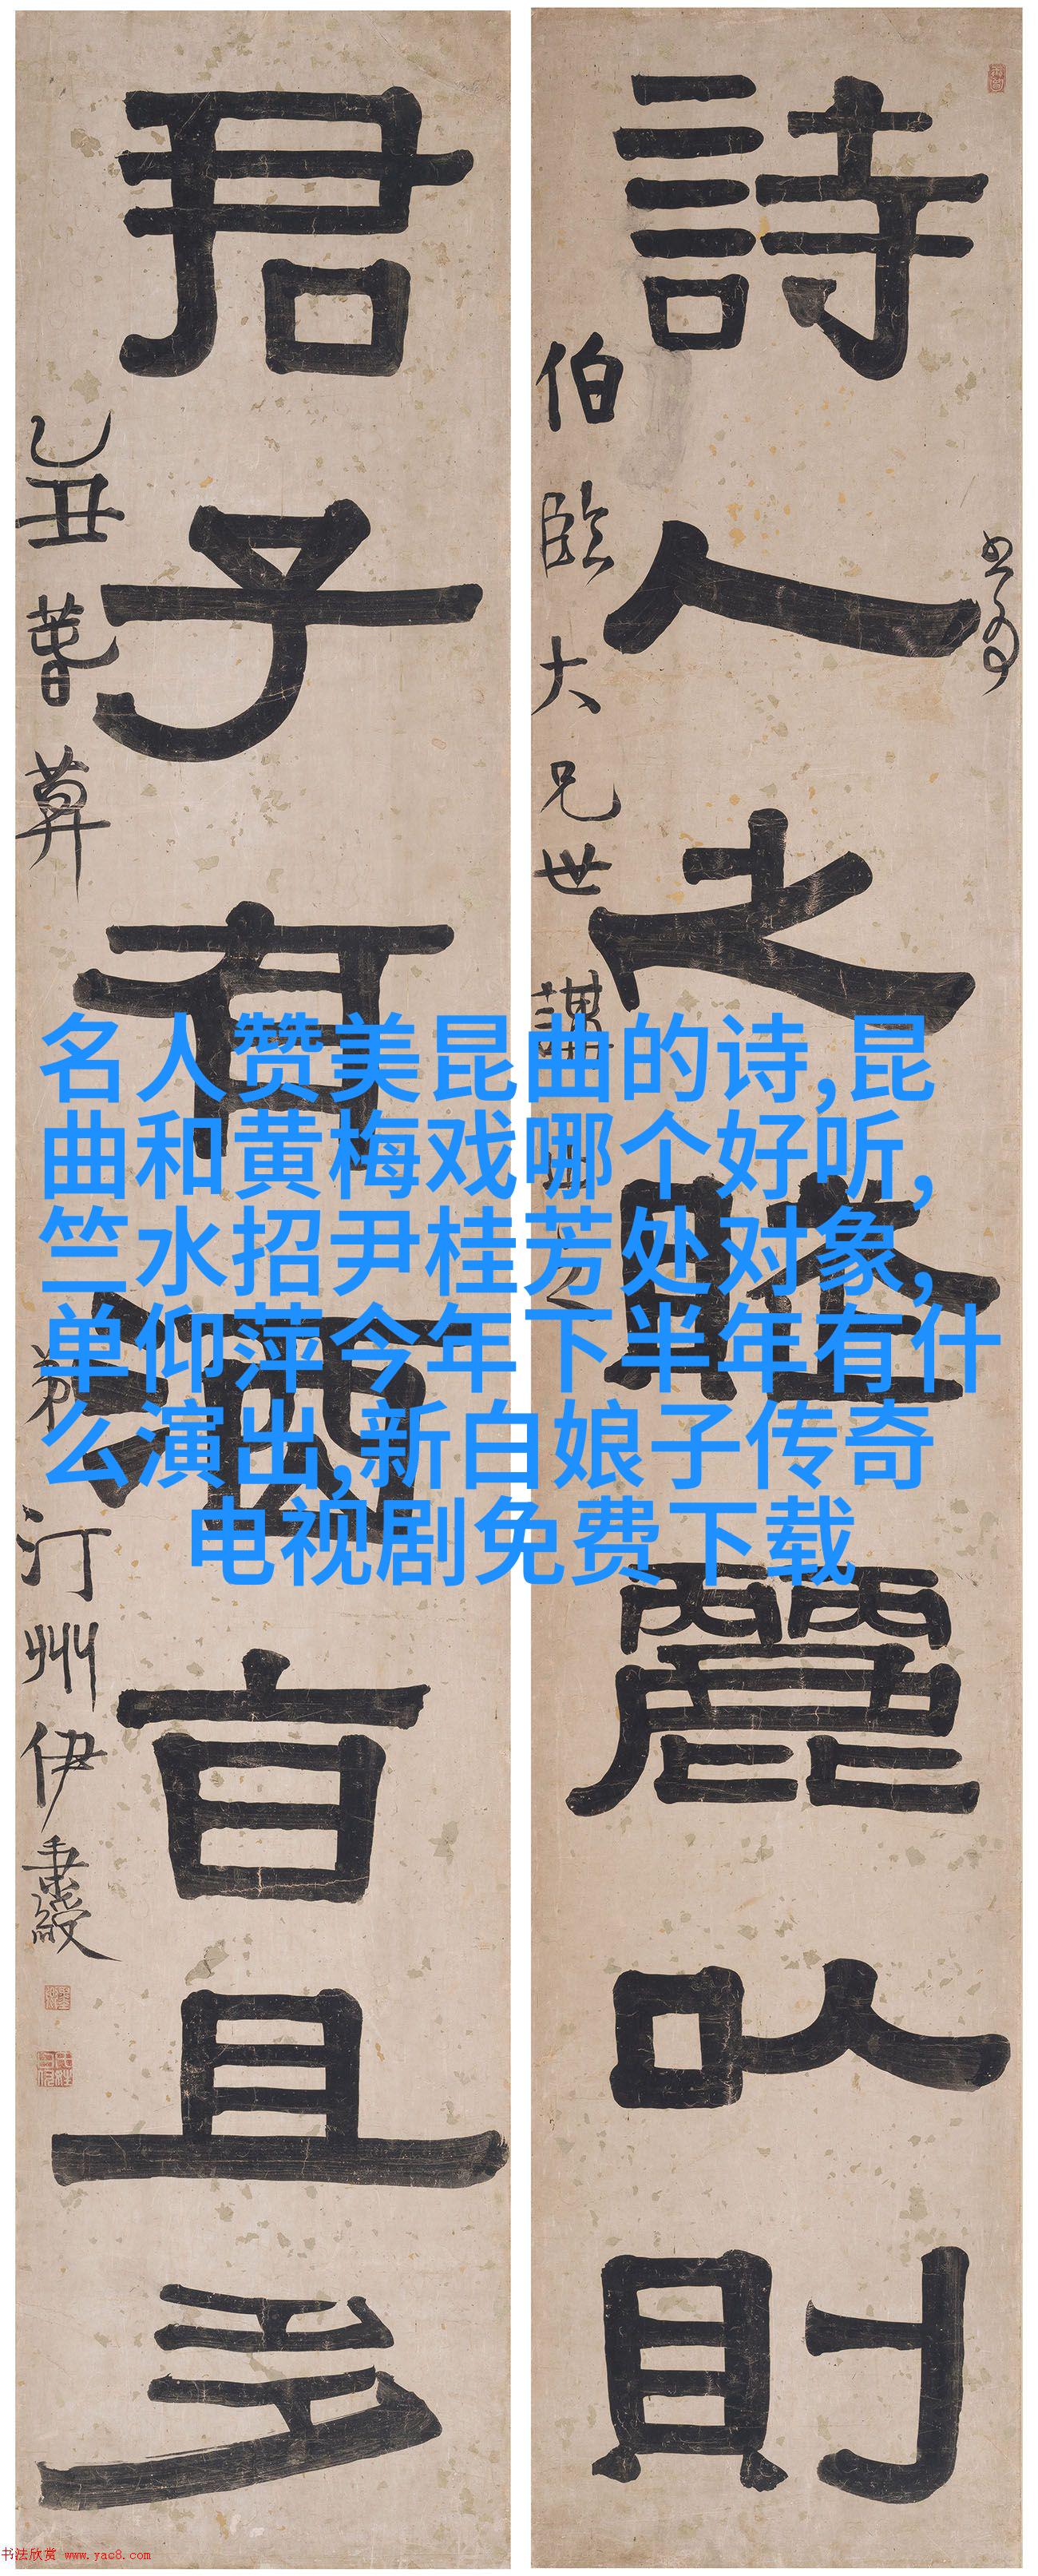 詩人之賦麗以則
伯臨大兄世講
君子有酒旨且多
乙丑暮春
弟汀州伊秉綬
名人赞美昆曲的诗,昆
曲和黄梅戏哪个好听,
竺水招尹桂芳处对象,
单仰萍今年下半年有什
么演出,新白娘子传奇
电视剧免费下载
书法欣赏 www.yac8.com